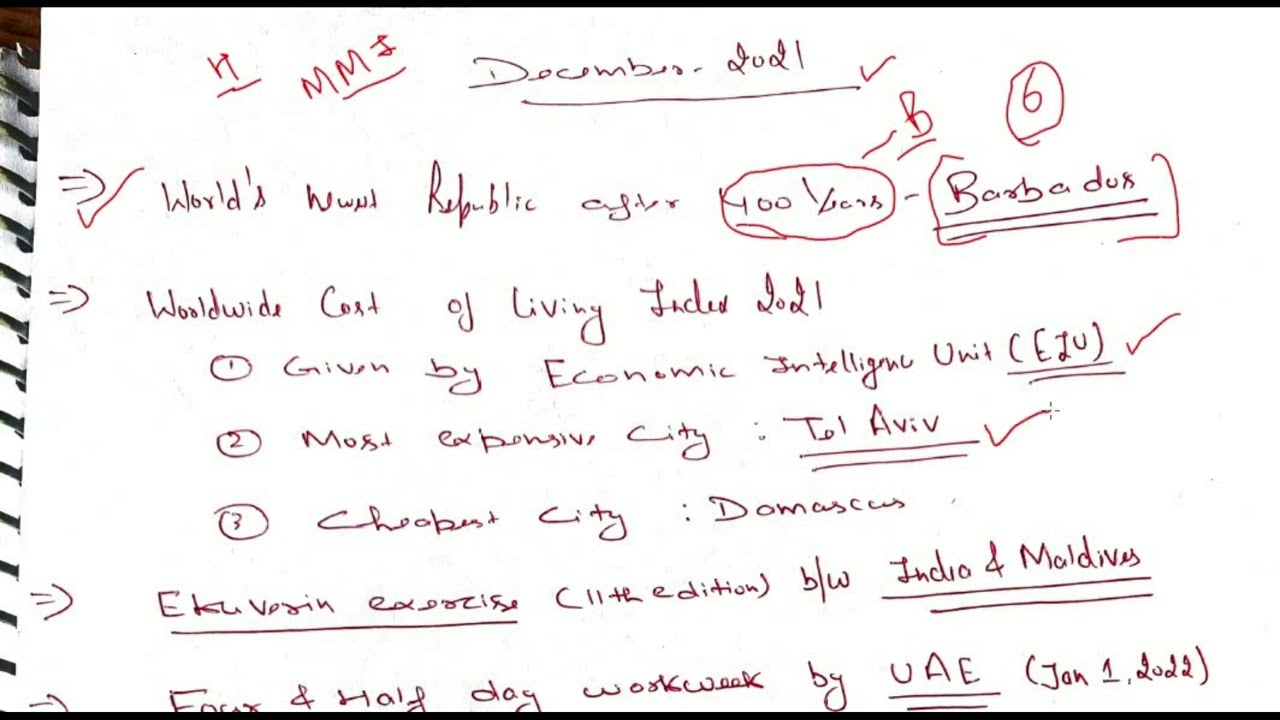 H MMI December - 2021
B 6
⇒ World's newest Republic after 400 Years - Barbados
⇒ Worldwide Cost of Living Index 2021
① Given by Economic Intelligence Unit (EIU)
② Most expensive City : Tel Aviv
③ Cheapest City : Damascus
⇒ Ekuverin exercise (11th edition) b/w India & Maldives
⇒ Four & Half day workweek by UAE (Jan 1, 2022)